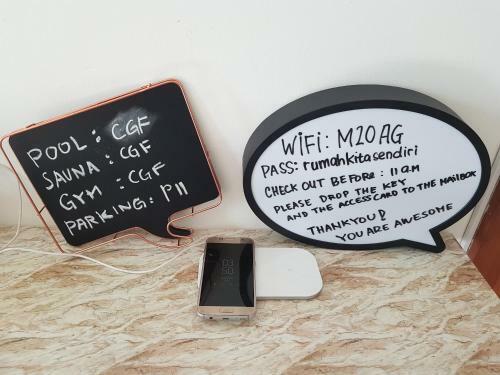 POOL: CGF
SAUNA: CGF
GYM: CGF
PARKING: P11
WiFi: M20AG
PASS: rumahkitasendiri
CHECK OUT BEFORE: 11 am
PLEASE DROP THE KEY
AND THE ACCESS CARD TO THE MAILBOX
THANKYOU!
YOU ARE AWESOME
03
50